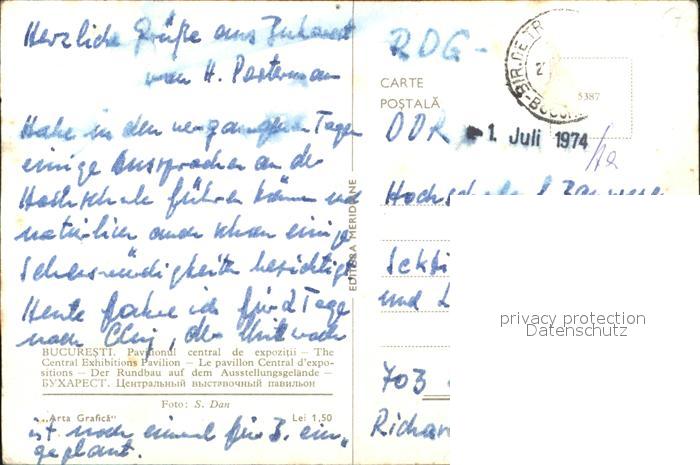 Herzliche Grüße aus Bukarest
von H. Postermann
Habe in den vergangenen Tagen
einige Aussprachen an der
Hochschule führen können und
natürlich auch schon einige
Sehenswürdigkeiten besichtigt.
Heute fahre ich für 2 Tage
nach Cluj, der Mittwoch
BUCUREŞTI. Pavilionul central de expoziții — The
Central Exhibitions Pavilion — Le pavillon Central d'expo-
sitions — Der Rundbau auf dem Ausstellungsgelände —
БУХАРЕСТ. Центральный выставочный павильон
Foto: S. Dan
„Arta Grafică“ Lei 1,50
ist noch einmal für B. ein-
geplant.
EDITURA MERIDIANE
RDG-
CARTE
POŞTALĂ
5387
DDR
1. Juli 1974
Hochschule f. Bauwesen
Sekti
und L
703
Richar
privacy protection
Datenschutz